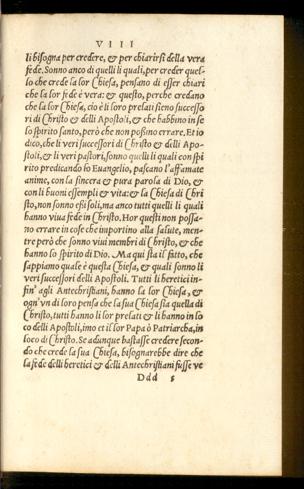 VIII
li bisogna per credere, & per chiarirsi della vera
fede. Sonno anco di quelli li quali, per creder quel-
lo che crede la lor Chiesa, pensano di esser chiari
che la lor fede è vera: & questo, perche credano
che la lor Chiesa, cio è li loro prelati sieno successo
ri di Christo & delli Apostoli, & che habbino in se
lo spirito santo, però che non possino errare. Et io
dico, che li veri successori di Christo & delli Apo-
stoli, & li veri pastori, sonno quelli li quali con spi
rito predicando lo Euangelio, pascano l'affamate
anime, con la sincera & pura parola di Dio, &
con li buoni essempli & vita: & la Chiesa di Chri
sto, non sonno essi soli, ma anco tutti quelli li quali
hanno viua fede in Christo. Hor questi non possa-
no errare in cose che importino alla salute, men-
tre però che sonno viui membri di Christo, & che
hanno lo spirito di Dio. Ma qui sta il fatto, che
sappiamo quale è questa Chiesa, & quali sonno li
veri successori delli Apostoli. Tutti li heretici in-
fin' agli Antechristiani, hanno la lor Chiesa, &
ogn'vn di loro pensa che la sua Chiesa sia quella di
Christo, tutti hanno li lor prelati & li hanno in lo
co delli Apostoli, imo et il lor Papa ò Patriarcha, in
loco di Christo. Se adunque bastasse credere secon-
do che crede la sua Chiesa, bisognarebbe dire che
la fede delli heretici & delli Antechristiani fusse ve
Ddd 5